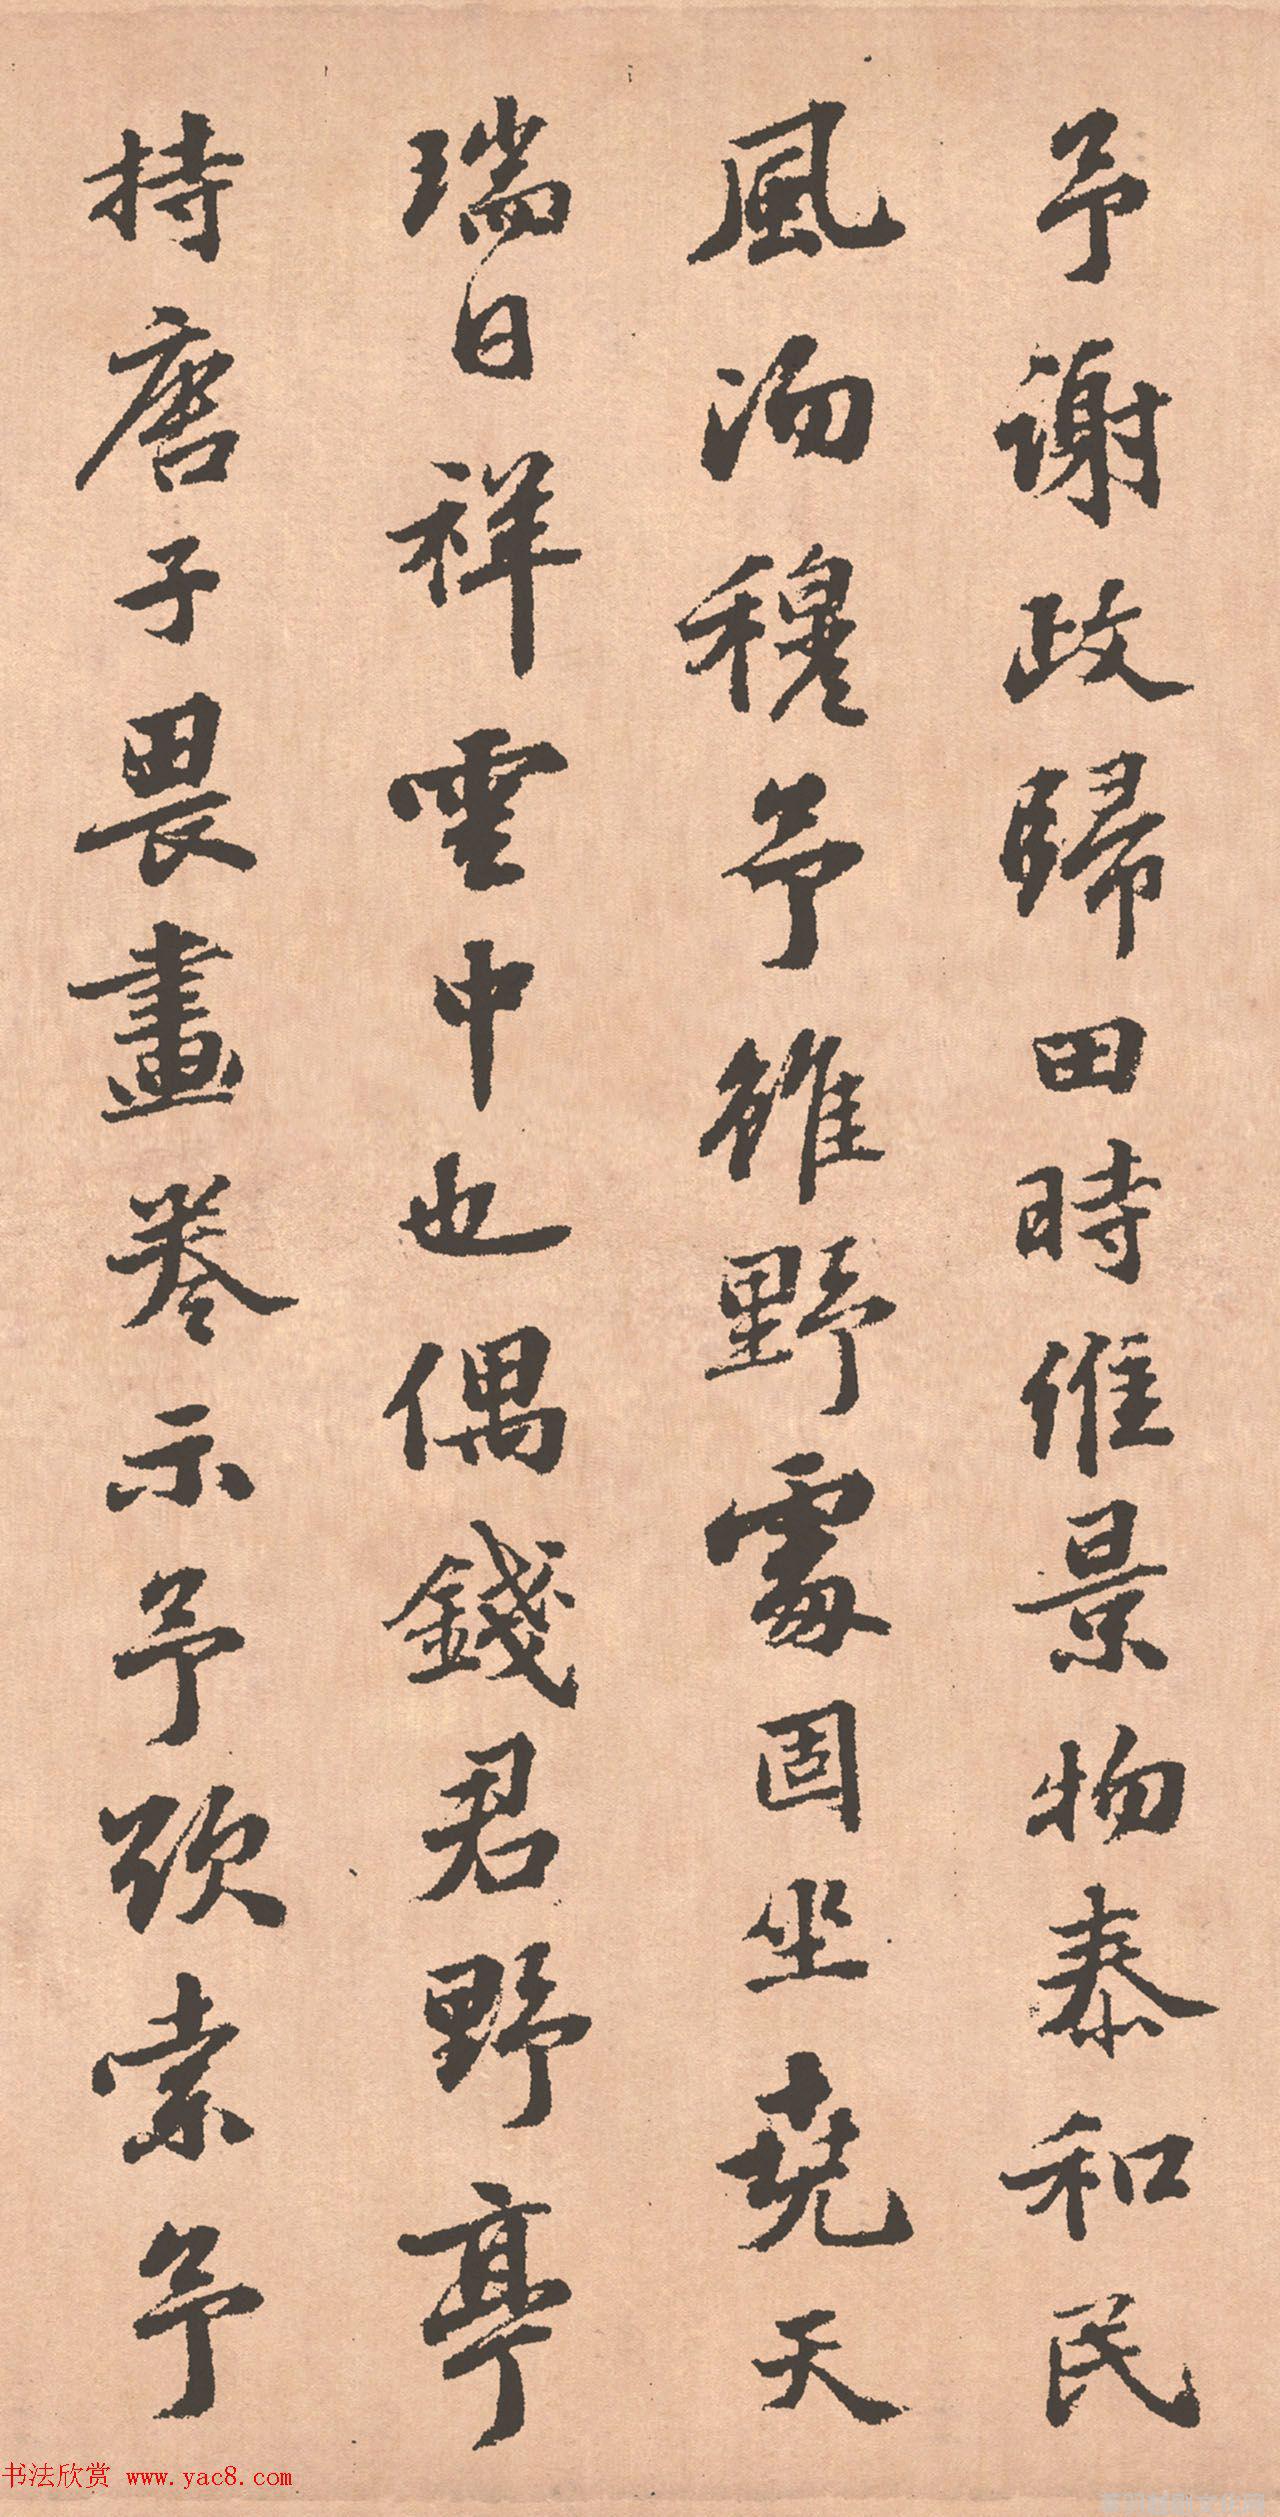 予谢政歸田時維景物泰和民
風沕穆予雖野處固坐堯天
瑞日祥雲中也偶錢君野亭
持唐子畏畫卷示予欣索予
书法欣赏 www.yac8.com